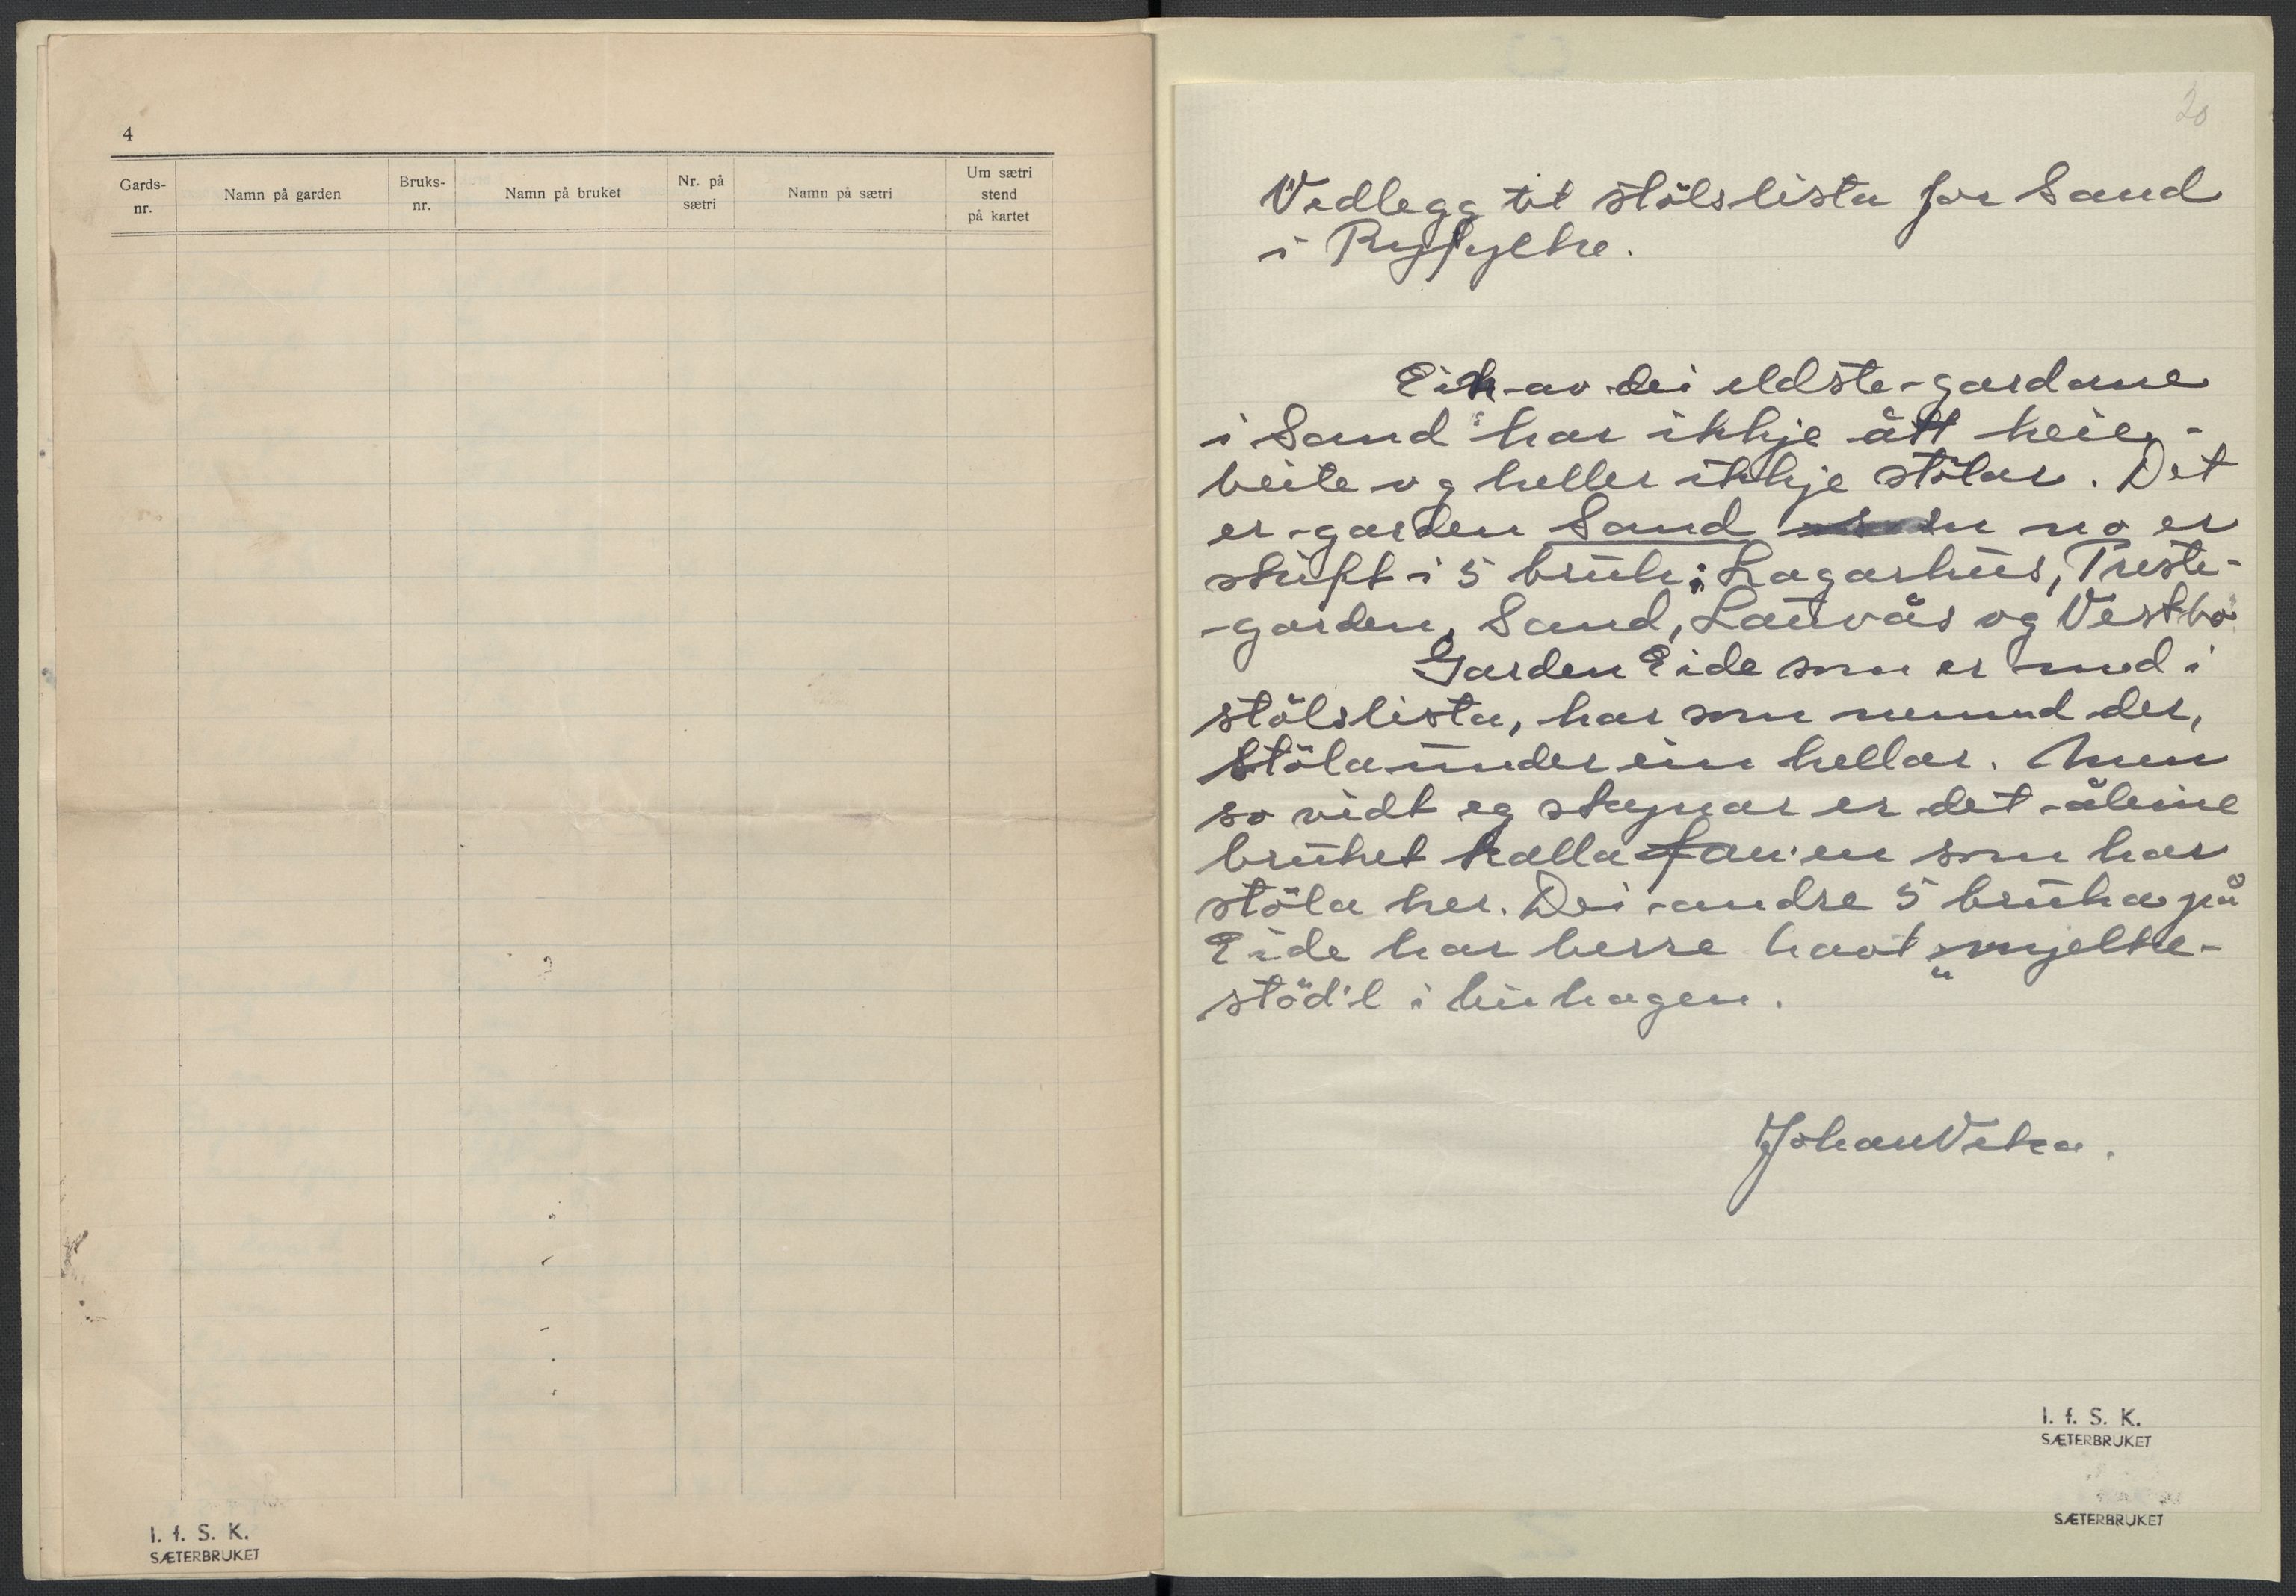 4
Gards-
nr.
Namn på garden
Bruks-
nr.
Namn på bruket
Nr. på
sætri
Namn på sætri
Um sætri
stend
på kartet
I. f. S. K.
SÆTERBRUKET
20
Vedlegg til stölslista for Sand
i Ryfylke.
Ein av dei eldste gardane
i Sand har ikkje ått heie-
beite og heller ikkje stölar. Det
er garden Sand som no er
skift i 5 bruk: Lagarhus, Preste-
garden, Sand, Lauvås og Vestbø
Garden Eide som er med i
stölslista, har som nemnd der,
støla under ein hellar. Men
so vidt eg skynar er det åleine
bruket kalla som har
stöla her. Dei andre 5 bruka på
Eide har berre havt "mjelke-
stöd'l i kuhagen.
Johan Veka.
I. f. S. K.
SÆTERBRUKET
SÆTERBRUKET